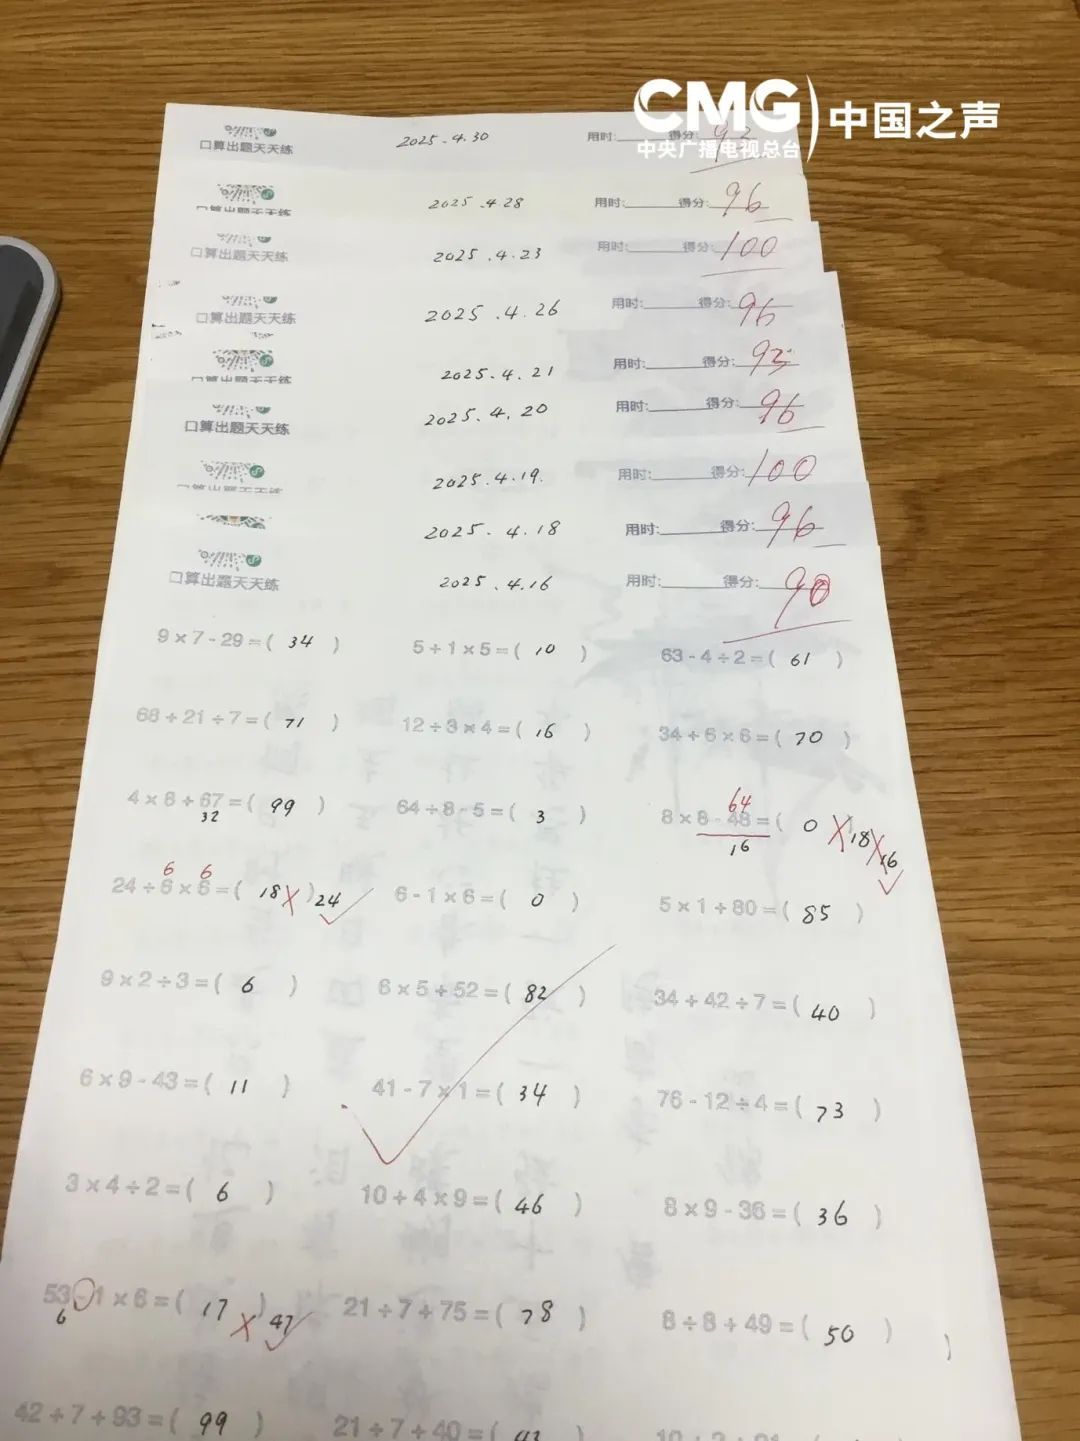 CMG 中国之声
中央广播电视总台
口算出题天天练 2025.4.30 用时: 得分: 93
口算出题天天练 2025.4.28 用时: 得分: 96
口算出题天天练 2025.4.23 用时: 得分: 100
口算出题天天练 2025.4.26 用时: 得分: 96
口算出题天天练 2025.4.21 用时: 得分: 93
口算出题天天练 2025.4.20 用时: 得分: 96
口算出题天天练 2025.4.19. 用时: 得分: 100
2025.4.18 用时: 得分: 96
口算出题天天练 2025.4.16 用时: 得分: 90
9×7-29=( 34 ) 5+1×5=( 10 ) 63-4÷2=( 61 )
68+21÷7=( 71 ) 12÷3×4=( 16 ) 34+6×6=( 70 )
4×8+67=( 99 ) 64÷8-5=( 3 ) 8×8-48=( 0 18 16
32 64 16
24÷6×6=( 18 ) 24 6-1×6=( 0 ) 5×1+80=( 85 )
6 6
9×2÷3=( 6 ) 6×5+52=( 82 ) 34+42÷7=( 40 )
6×9-43=( 11 ) 41-7×1=( 34 ) 76-12÷4=( 73 )
3×4÷2=( 6 ) 10+4×9=( 46 ) 8×9-36=( 36 )
53-1×6=( 17 ) 47 21÷7+75=( 78 ) 8÷8+49=( 50 )
6
42÷7+93=( 99 ) 21÷7+40=(